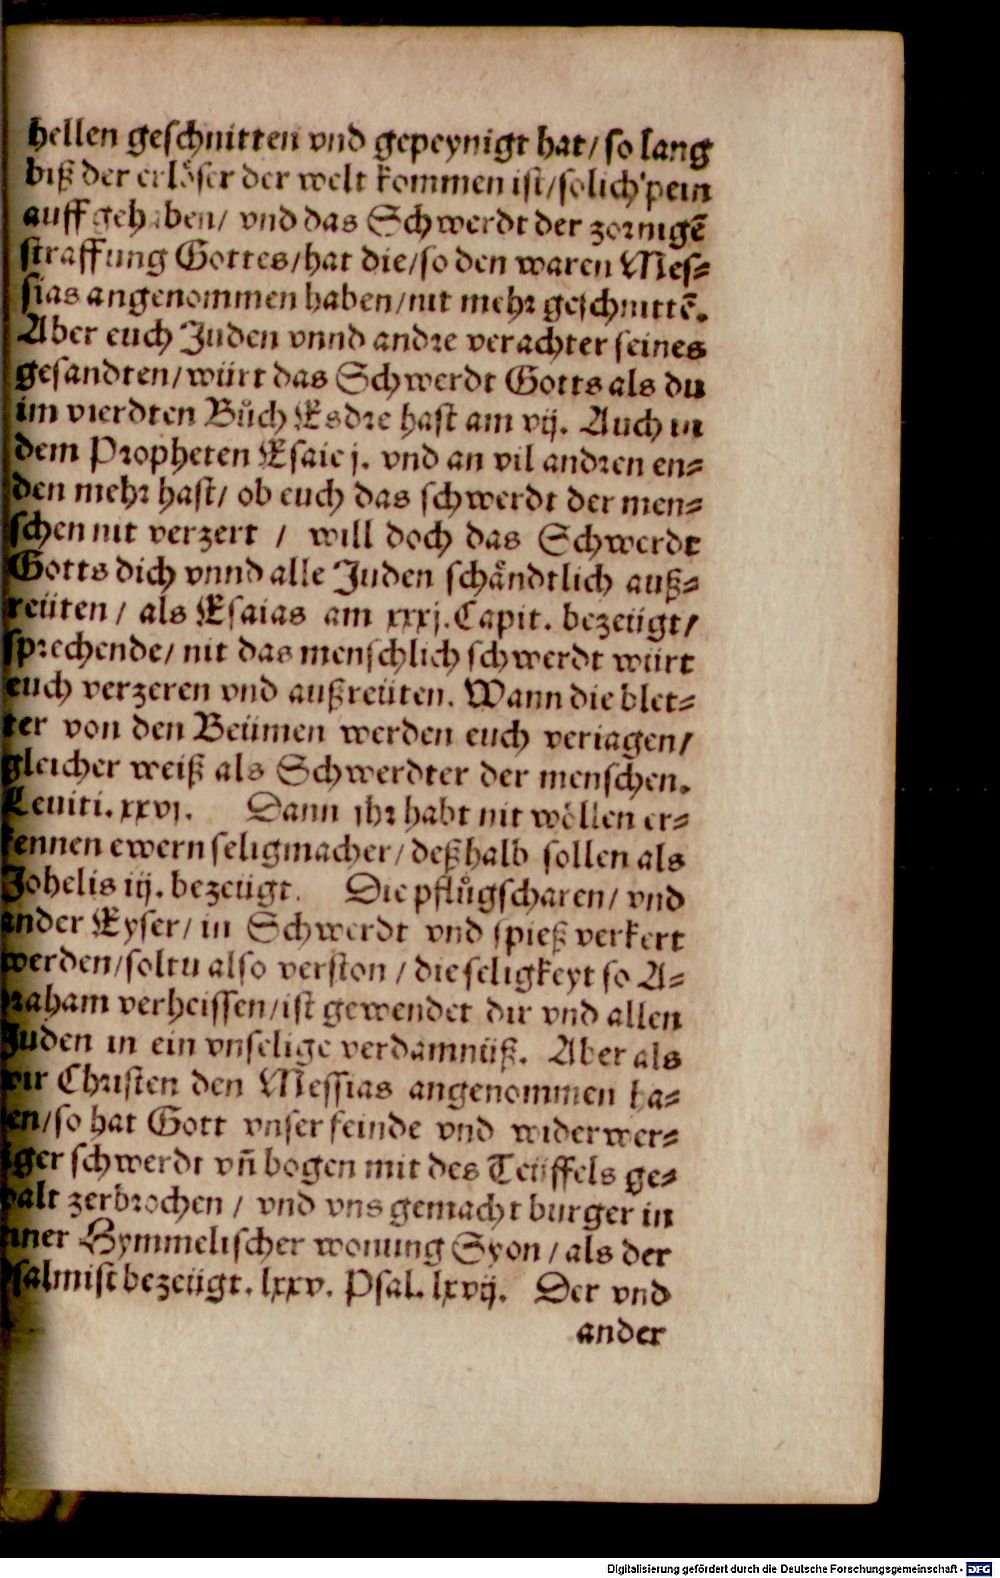 hellen geschnitten vnd gepeynigt hat/ so lang
biß der erlöser der welt kommen ist/ solich pein
auffgehaben/ vnd das Schwerdt der zornigē
straffung Gottes/ hat die/ so den waren Mes⸗
sias angenommen haben/ nit mehr geschnittē.
Aber euch Juden vnnd andre verachter seines
gesandten/ würt das Schwerdt Gotts als du
im vierdten Bůch Esdre hast am vij. Auch in
dem Propheten Esaie j. vnd an vil andren en⸗
den mehr hast/ ob euch das schwerdt der men⸗
schen nit verzert / will doch das Schwerdt
Gotts dich vnnd alle Juden schåndtlich auß⸗
reüten / als Esaias am xxxj. Capit. bezeügt/
sprechende/ nit das menschlich schwerdt würt
euch verzeren vnd außreüten. Wann die blet⸗
ter von den Beümen werden euch veriagen/
gleicher weiß als Schwerdter der menschen.
Leuiti. xxvj. Dann jhr habt nit wöllen er⸗
kennen ewern seligmacher/ deßhalb sollen als
Johelis iij. bezeügt. Die pflůgscharen/ vnd
ander Eyser/ in Schwerdt vnd spieß verkert
werden/ soltu also verston / die seligkeyt so A⸗
raham verheissen/ ist gewendet dir vnd allen
Juden in ein vnselige verdamnüß. Aber als
wir Christen den Messias angenommen ha⸗
en/ so hat Gott vnser feinde vnd widerwer⸗
iger schwerdt vñ bogen mit des Teüffels ge⸗
walt zerbrochen / vnd vns gemacht burger in
iner Hymmelischer wonung Syon / als der
Psalmist bezeügt. lxxv. Psal. lxvij. Der vnd
ander
Digitalisierung gefördert durch die Deutsche Forschungsgemeinschaft - DFG